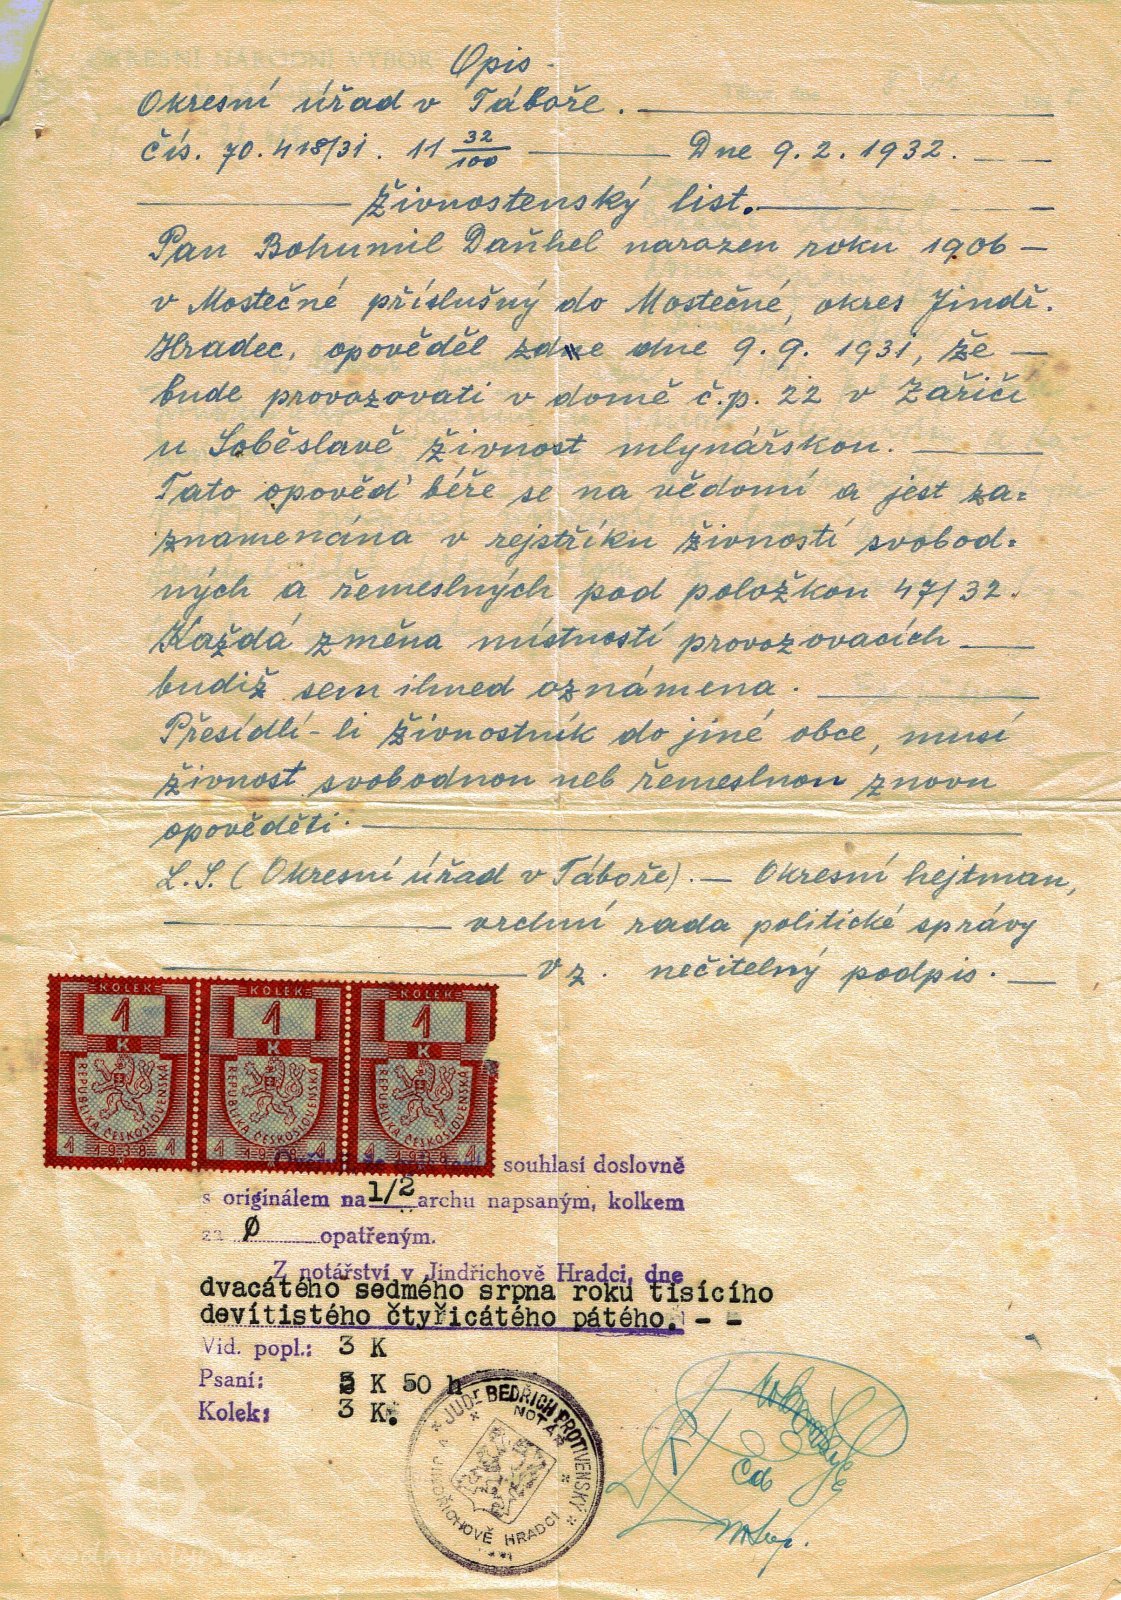 Opis.
Okresní úřad v Táboře.
Čís. 70.418/31. 11 32/100 Dne 9.2.1932.
Živnostenský list.
Pan Bohumil Daňhel narozen roku 1906 –
v Mostečné příslušný do Mostečné, okres Jindř.
Hradec, opověděl zdne dne 9.9. 1931, že –
bude provozovati v domě č.p. 22 v Záříčí
u Soběslavě živnost mlynářskou.
Tato opověď béře se na vědomí a jest za=
znamenána v rejstříku živností svobod=
ných a řemeslných pod položkou 47/32.
Každá změna místností provozovacích
budiž sem ihned oznámena.
Přesídlí-li živnostník do jiné obce, musí
živnost svobodnou neb řemeslnou znovu
opověděti.
L.S. (Okresní úřad v Táboře). – Okresní hejtman,
vrchní rada politické správy
v z. nečitelný podpis.
KOLEK KOLEK KOLEK
1 1 1
K K K
REPUBLIKA ČESKOSLOVENSKÁ REPUBLIKA ČESKOSLOVENSKÁ REPUBLIKA ČESKOSLOVENSKÁ
1 1938 1 1 1938 1 1 1938 1
souhlasí doslovně
s originálem na 1/2 archu napsaným, kolkem
za 0 opatřeným.
Z notářství v Jindřichově Hradci, dne
dvacátého sedmého srpna roku tisícího
devítistého čtyřicátého pátého. - -
Vid. popl.: 3 K
Psaní: 5 K 50 h
Kolek: 3 K.
JUDr BEDŘICH PROTIVENSKÝ
NOTÁŘ
V JINDŘICHOVĚ HRADCI